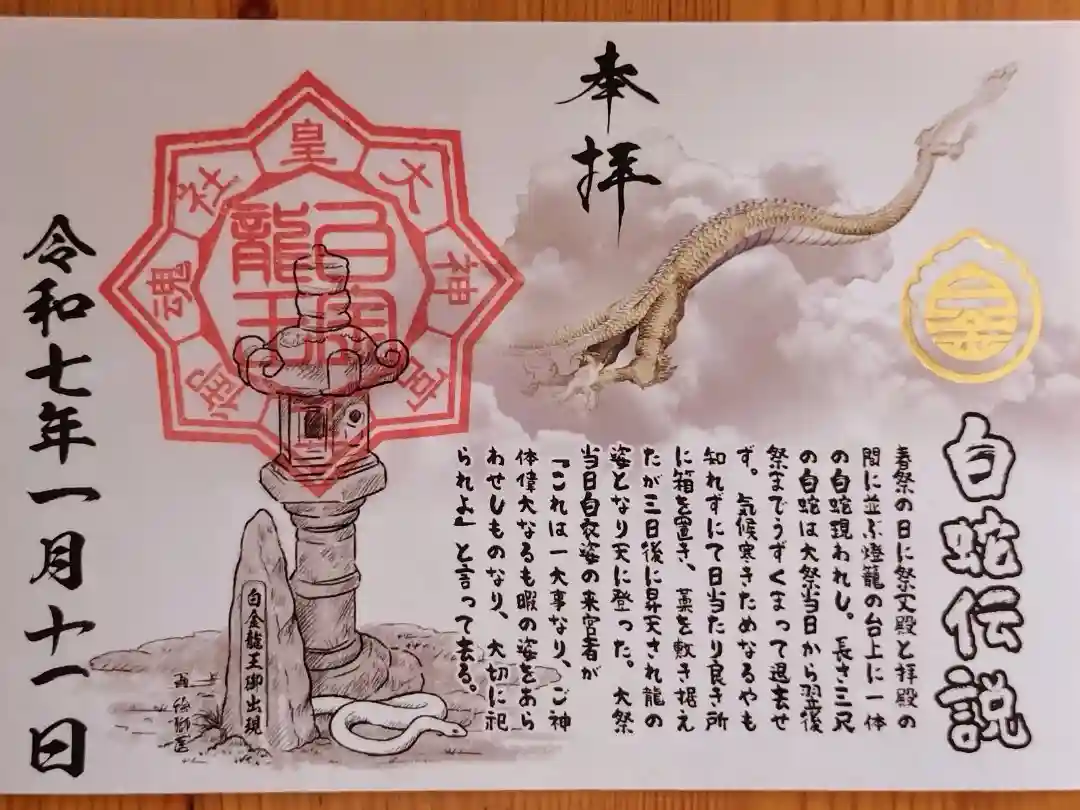 奉拝
白蛇伝説
春祭の日に祭文殿と拝殿の
間に並ぶ燈籠の台上に一体
の白蛇現われし。長さ三尺
の白蛇は大祭当日から翌後
祭までうずくまって退去せ
ず。気候寒きためなるやも
知れずにて日当たり良き所
に箱を置き、藁を敷き据え
たが三日後に昇天され龍の
姿となり天に登った。大祭
当日白衣姿の来宮者が
『これは一大事なり、ご神
体偉大なるも暇の姿をあら
わせしものなり、大切に祀
られよ』と言って去る。
皇大神宮御魂社
白金龍王
白金龍王御出現
令和七年一月十一日